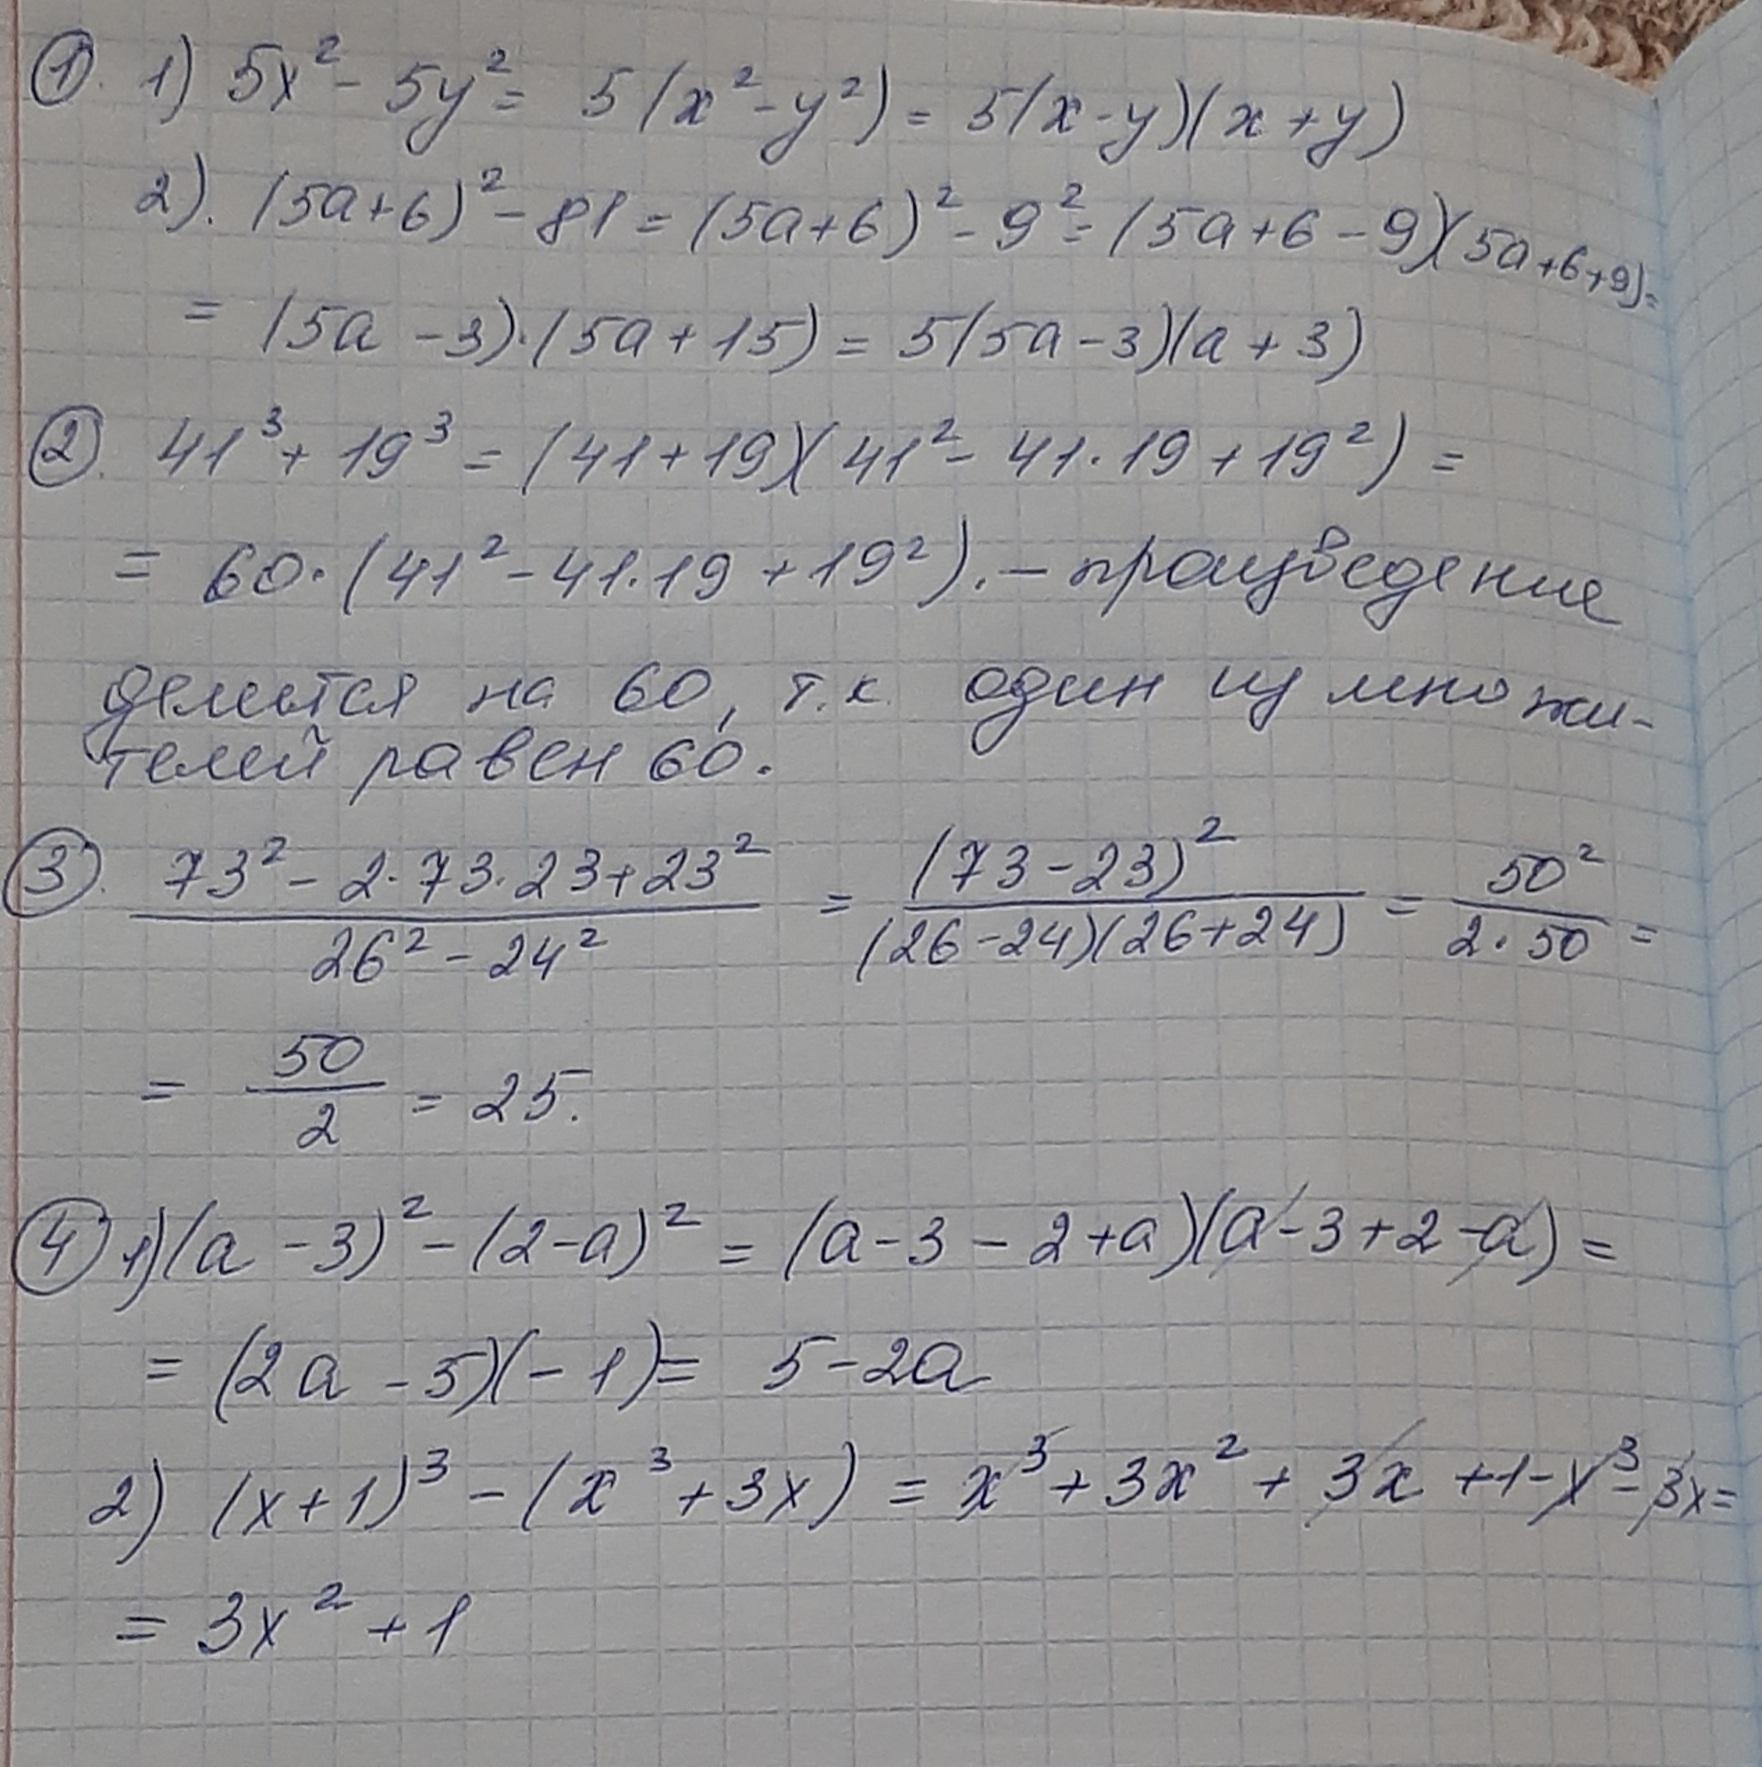 ① 1) 5x² - 5y² = 5(x² - y²) = 5(x - y)(x + y)
2). (5a+6)² - 81 = (5a+6)² - 9² = (5a+6-9)(5a+6+9) =
= (5a - 3)·(5a + 15) = 5(5a - 3)(a + 3)
②. 41³ + 19³ = (41 + 19)(41² - 41·19 + 19²) =
= 60·(41² - 41·19 + 19²). – произведение
делится на 60, т.к. один из множи-
телей равен 60.
③. (73² - 2·73·23 + 23²)/(26² - 24²) = (73 - 23)²/((26 - 24)(26 + 24)) = 50²/(2·50) =
= 50/2 = 25.
④ 1) (a - 3)² - (2 - a)² = (a - 3 - 2 + a)(a - 3 + 2 - a) =
= (2a - 5)(-1) = 5 - 2a
2) (x + 1)³ - (x³ + 3x) = x³ + 3x² + 3x + 1 - x³ - 3x =
= 3x² + 1